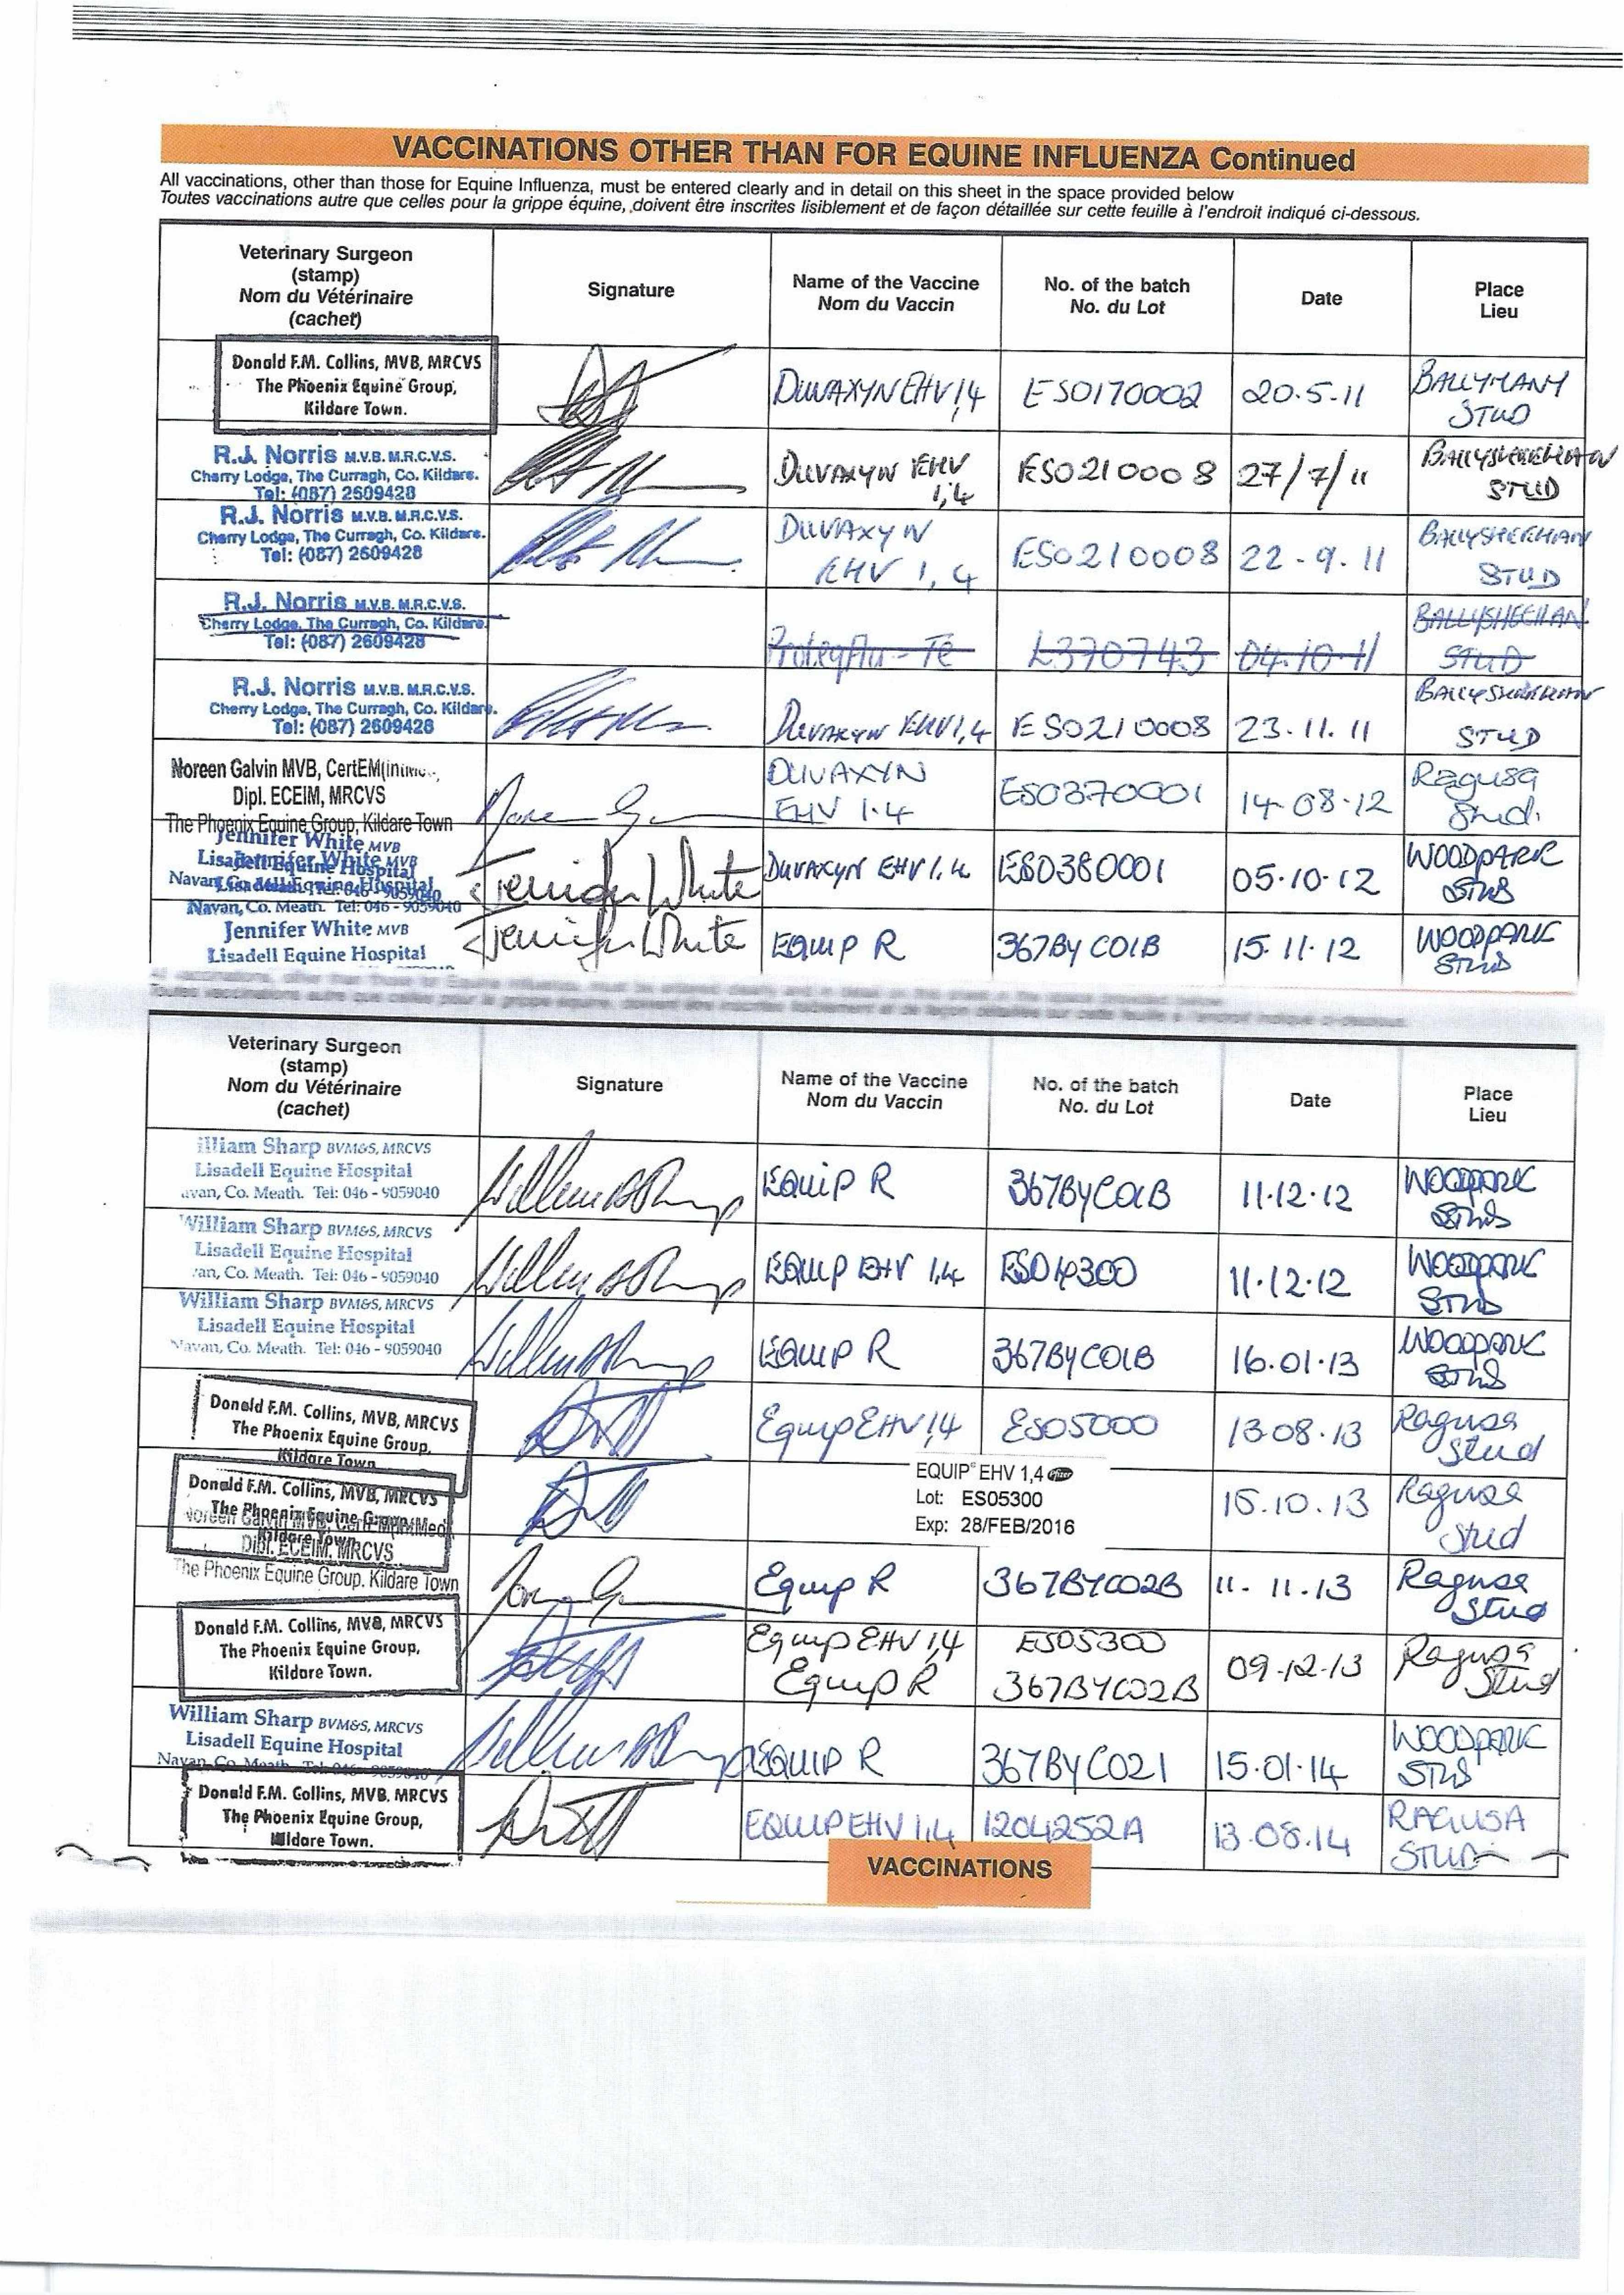 VACCINATIONS OTHER THAN FOR EQUINE INFLUENZA Continued
All vaccinations, other than those for Equine Influenza, must be entered clearly and in detail on this sheet in the space provided below
Toutes vaccinations autre que celles pour la grippe équine, doivent être inscrites lisiblement et de façon détaillée sur cette feuille à l'endroit indiqué ci-dessous.
Veterinary Surgeon
(stamp)
Nom du Vétérinaire
(cachet)
Signature
Name of the Vaccine
Nom du Vaccin
No. of the batch
No. du Lot
Date
Place
Lieu
Donald F.M. Collins, MVB, MRCVS
The Phoenix Equine Group,
Kildare Town.
DUVAXYN EHV 1,4 ES0170002 20.5.11 BALLYMANY
STUD
R.J. Norris M.V.B. M.R.C.V.S.
Cherry Lodge, The Curragh, Co. Kildare.
Tel: (087) 2609428
DUVAXYN EHV
1,4
ES0210008 27/7/11 BALLYSHEEHAN
STUD
R.J. Norris M.V.B. M.R.C.V.S.
Cherry Lodge, The Curragh, Co. Kildare.
Tel: (087) 2609428
DUVAXYN
EHV 1,4
ES0210008 22-9.11 BALLYSHEEHAN
STUD
R.J. Norris M.V.B. M.R.C.V.S.
Cherry Lodge, The Curragh, Co. Kildare.
Tel: (087) 2609428
Proteqflu-Te L370743 04.10.11 BALLYSHEEHAN
STUD
R.J. Norris M.V.B. M.R.C.V.S.
Cherry Lodge, The Curragh, Co. Kildare.
Tel: (087) 2609428
DUVAXYN EHV 1,4 ES0210008 23.11.11 BALLYSHEEHAN
STUD
Noreen Galvin MVB,
Dipl. ECEIM, MRCVS
The Phoenix Equine Group, Kildare Town
DUVAXYN
EHV 1.4
ES0370001 14-08-12 Ragusa
Stud.
Jennifer White MVB
Lisadell Equine Hospital
Navan, Co. Meath. Tel: 046 - 9059040
Jennifer White
DUVAXYN EHV 1.4 ES0380001 05.10.12 WOODPARK
STUD
Jennifer White MVB
Lisadell Equine Hospital
Jennifer White
EQUIP R 367BYC01B 15.11.12 WOODPARK
STUD
Veterinary Surgeon
(stamp)
Nom du Vétérinaire
(cachet)
Signature
Name of the Vaccine
Nom du Vaccin
No. of the batch
No. du Lot
Date
Place
Lieu
illiam Sharp BVM&S, MRCVS
Lisadell Equine Hospital
avan, Co. Meath. Tel: 046 - 9059040
EQUIP R 367BYC01B 11.12.12 WOODPARK
STUD
William Sharp BVM&S, MRCVS
Lisadell Equine Hospital
van, Co. Meath. Tel: 046 - 9059040
EQUIP EHV 1,4 11.12.12 WOODPARK
STUD
William Sharp BVM&S, MRCVS
Lisadell Equine Hospital
Navan, Co. Meath. Tel: 046 - 9059040
EQUIP R 367BYC01B 16.01.13 WOODPARK
STUD
Donald F.M. Collins, MVB, MRCVS
The Phoenix Equine Group,
Kildare Town
Equip EHV 1,4 ES05000 13.08.13 Ragusa
Stud
Donald F.M. Collins, MVB, MRCVS
The Phoenix Equine Group,
Kildare Town
EQUIP® EHV 1,4 Pfizer
Lot: ES05300
Exp: 28/FEB/2016
15.10.13 Ragusa
Stud
Dipl. ECEIM. MRCVS
The Phoenix Equine Group. Kildare Town
Equip R 367BYC02B 11.11.13 Ragusa
Stud
Donald F.M. Collins, MVB, MRCVS
The Phoenix Equine Group,
Kildare Town.
Equip EHV 1,4 ES05300
Equip R 367BYC02B
09.12.13 Ragusa
Stud
William Sharp BVM&S, MRCVS
Lisadell Equine Hospital
Navan, Co. Meath. Tel: 046 - 9059040
EQUIP R 367BYC021 15.01.14 WOODPARK
STUD
Donald F.M. Collins, MVB, MRCVS
The Phoenix Equine Group,
Kildare Town.
EQUIP EHV 1,4 1204252A 13.08.14 RAGUSA
STUD
VACCINATIONS